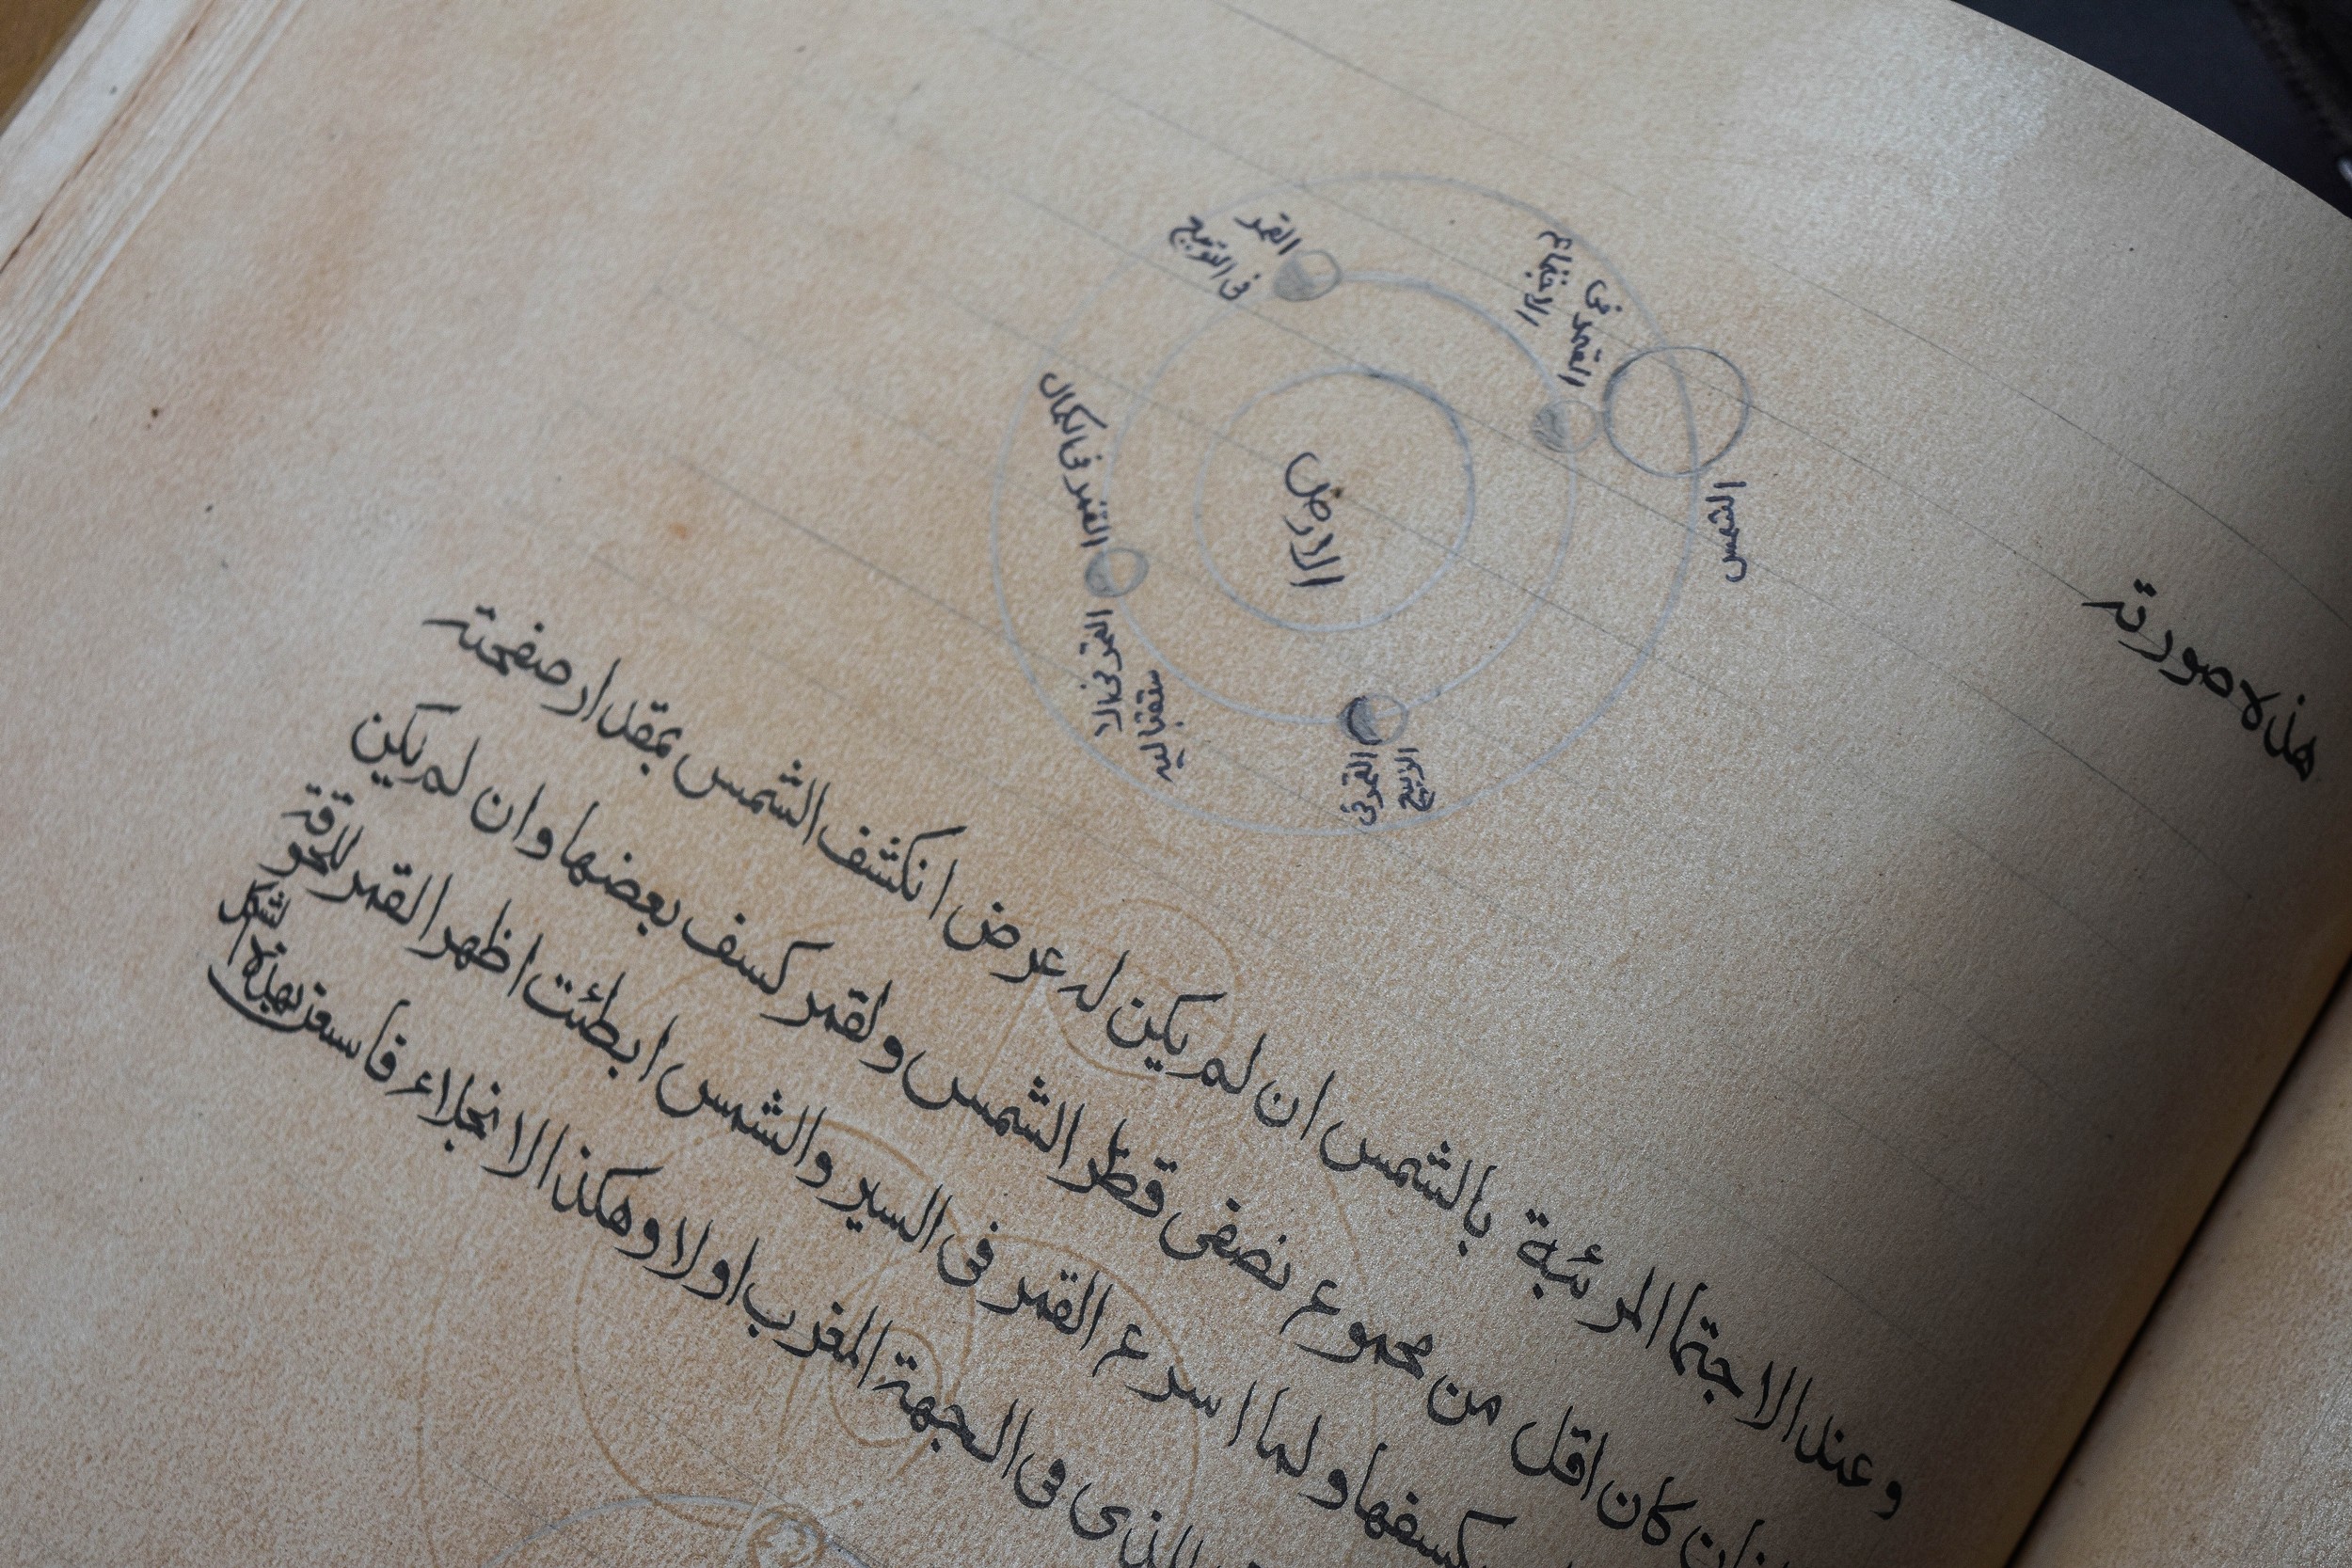 هذه صورته
القمر
فى التربيع
القمر فى
الاجتماع
الشمس
القمر فى الكمال
الارض
القمر فى الا
ستقباليه
القمر فى
وعند الاجتما المرئية بالشمس ان لم يكن له عرض انكشف الشمس بمقدار صفحته
كان اقل من مجموع نصفى قطر الشمس ولقمر كسف بعضها وان لم يكن
كسفها ولما اسرع القمر فى السير والشمس ابطئت اظهر القمر للحوقة
الذى فى الجهة المغرب اولا وهكذا الانجلاء فاستعن بهذا الشكل